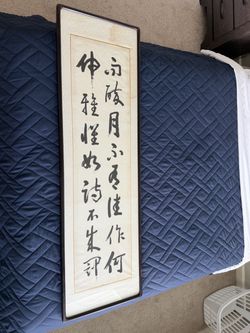 而醉月不有佳作何
伸雅懷如詩不成罰